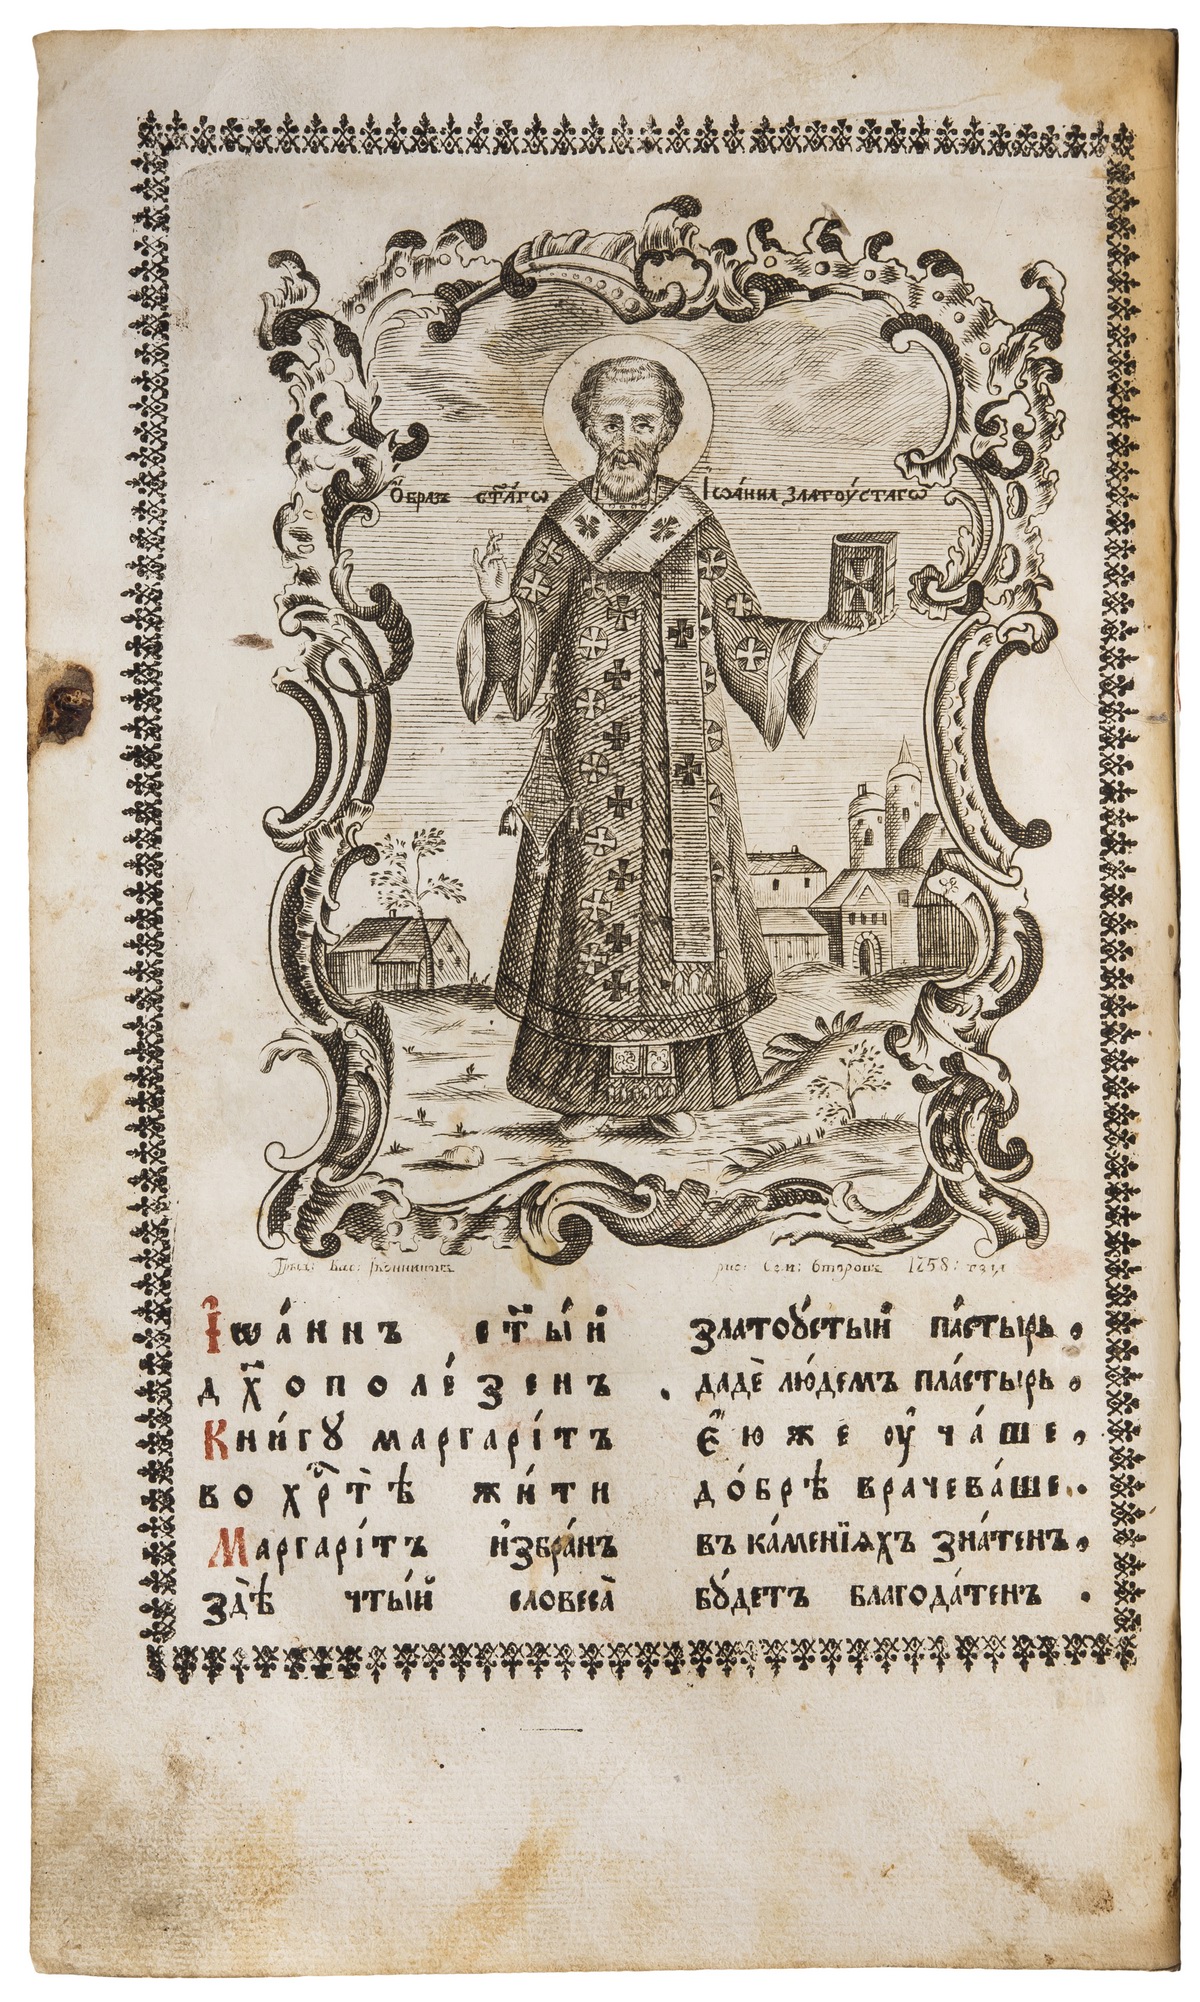 Ѻ҆бра́зъ ст҃а́гѡ І҆ѡа́нна златоꙋ́стагѡ
Грыд: Вас: Іконниковъ рис: Сем: Второвъ 1758: год
І҆ѡа́ннъ ст҃ы́й златоꙋ́стый па́стырь.
дх҃ополе́зенъ . дадѐ лю́демъ пла́стырь.
Кни́гꙋ маргарі́тъ є҆́юже ᲂу҆ча́ше.
во хрⷭ҇тѣ̀ жи́ти до́брѣ врачева́ше.
Маргарі́тъ и҆збра́нъ въ ка́менїяхъ зна́тенъ.
здѣ̀ чты́й словеса̀ бꙋ́детъ благода́тенъ .